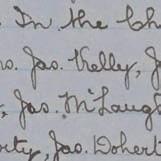 In the Ch
os. Jas. Kelly, J
, Jas. McLaug
erty, Jas. Dohert